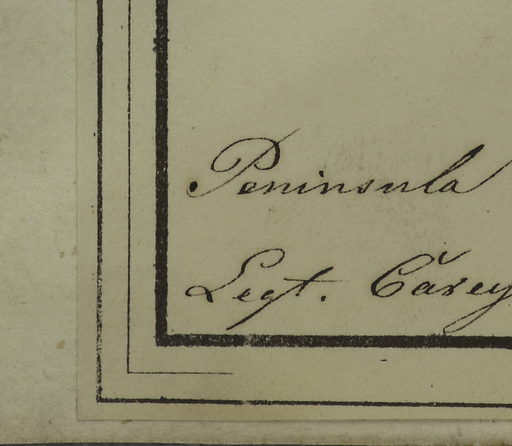 Peninsula
Legt. Carey